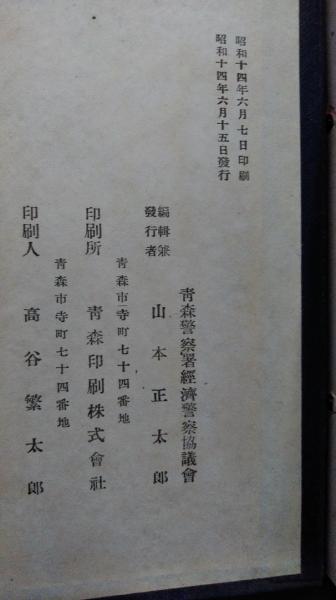 昭和十四年六月七日印刷
昭和十四年六月十五日發行
青森警察署經濟警察協議會
編輯兼
發行者
山本正太郎
青森市寺町七十四番地
印刷所 青森印刷株式會社
青森市寺町七十四番地
印刷人 高谷繁太郎